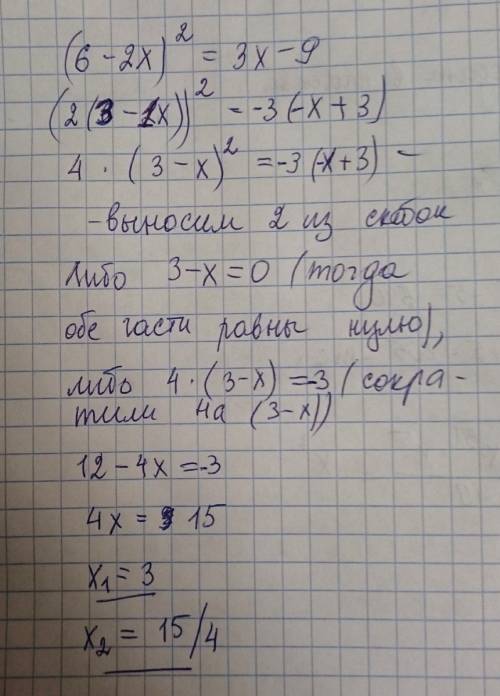 (6 - 2x)² = 3x - 9
(2(3 - 1x))² = -3(-x + 3)
4 · (3 - x)² = -3(-x + 3) -
- выносим 2 из скобок
либо 3 - x = 0 (тогда
обе части равны нулю),
либо 4 · (3 - x) = -3 (сокра-
тили на (3 - x))
12 - 4x = -3
4x = 15
x₁ = 3
x₂ = 15/4